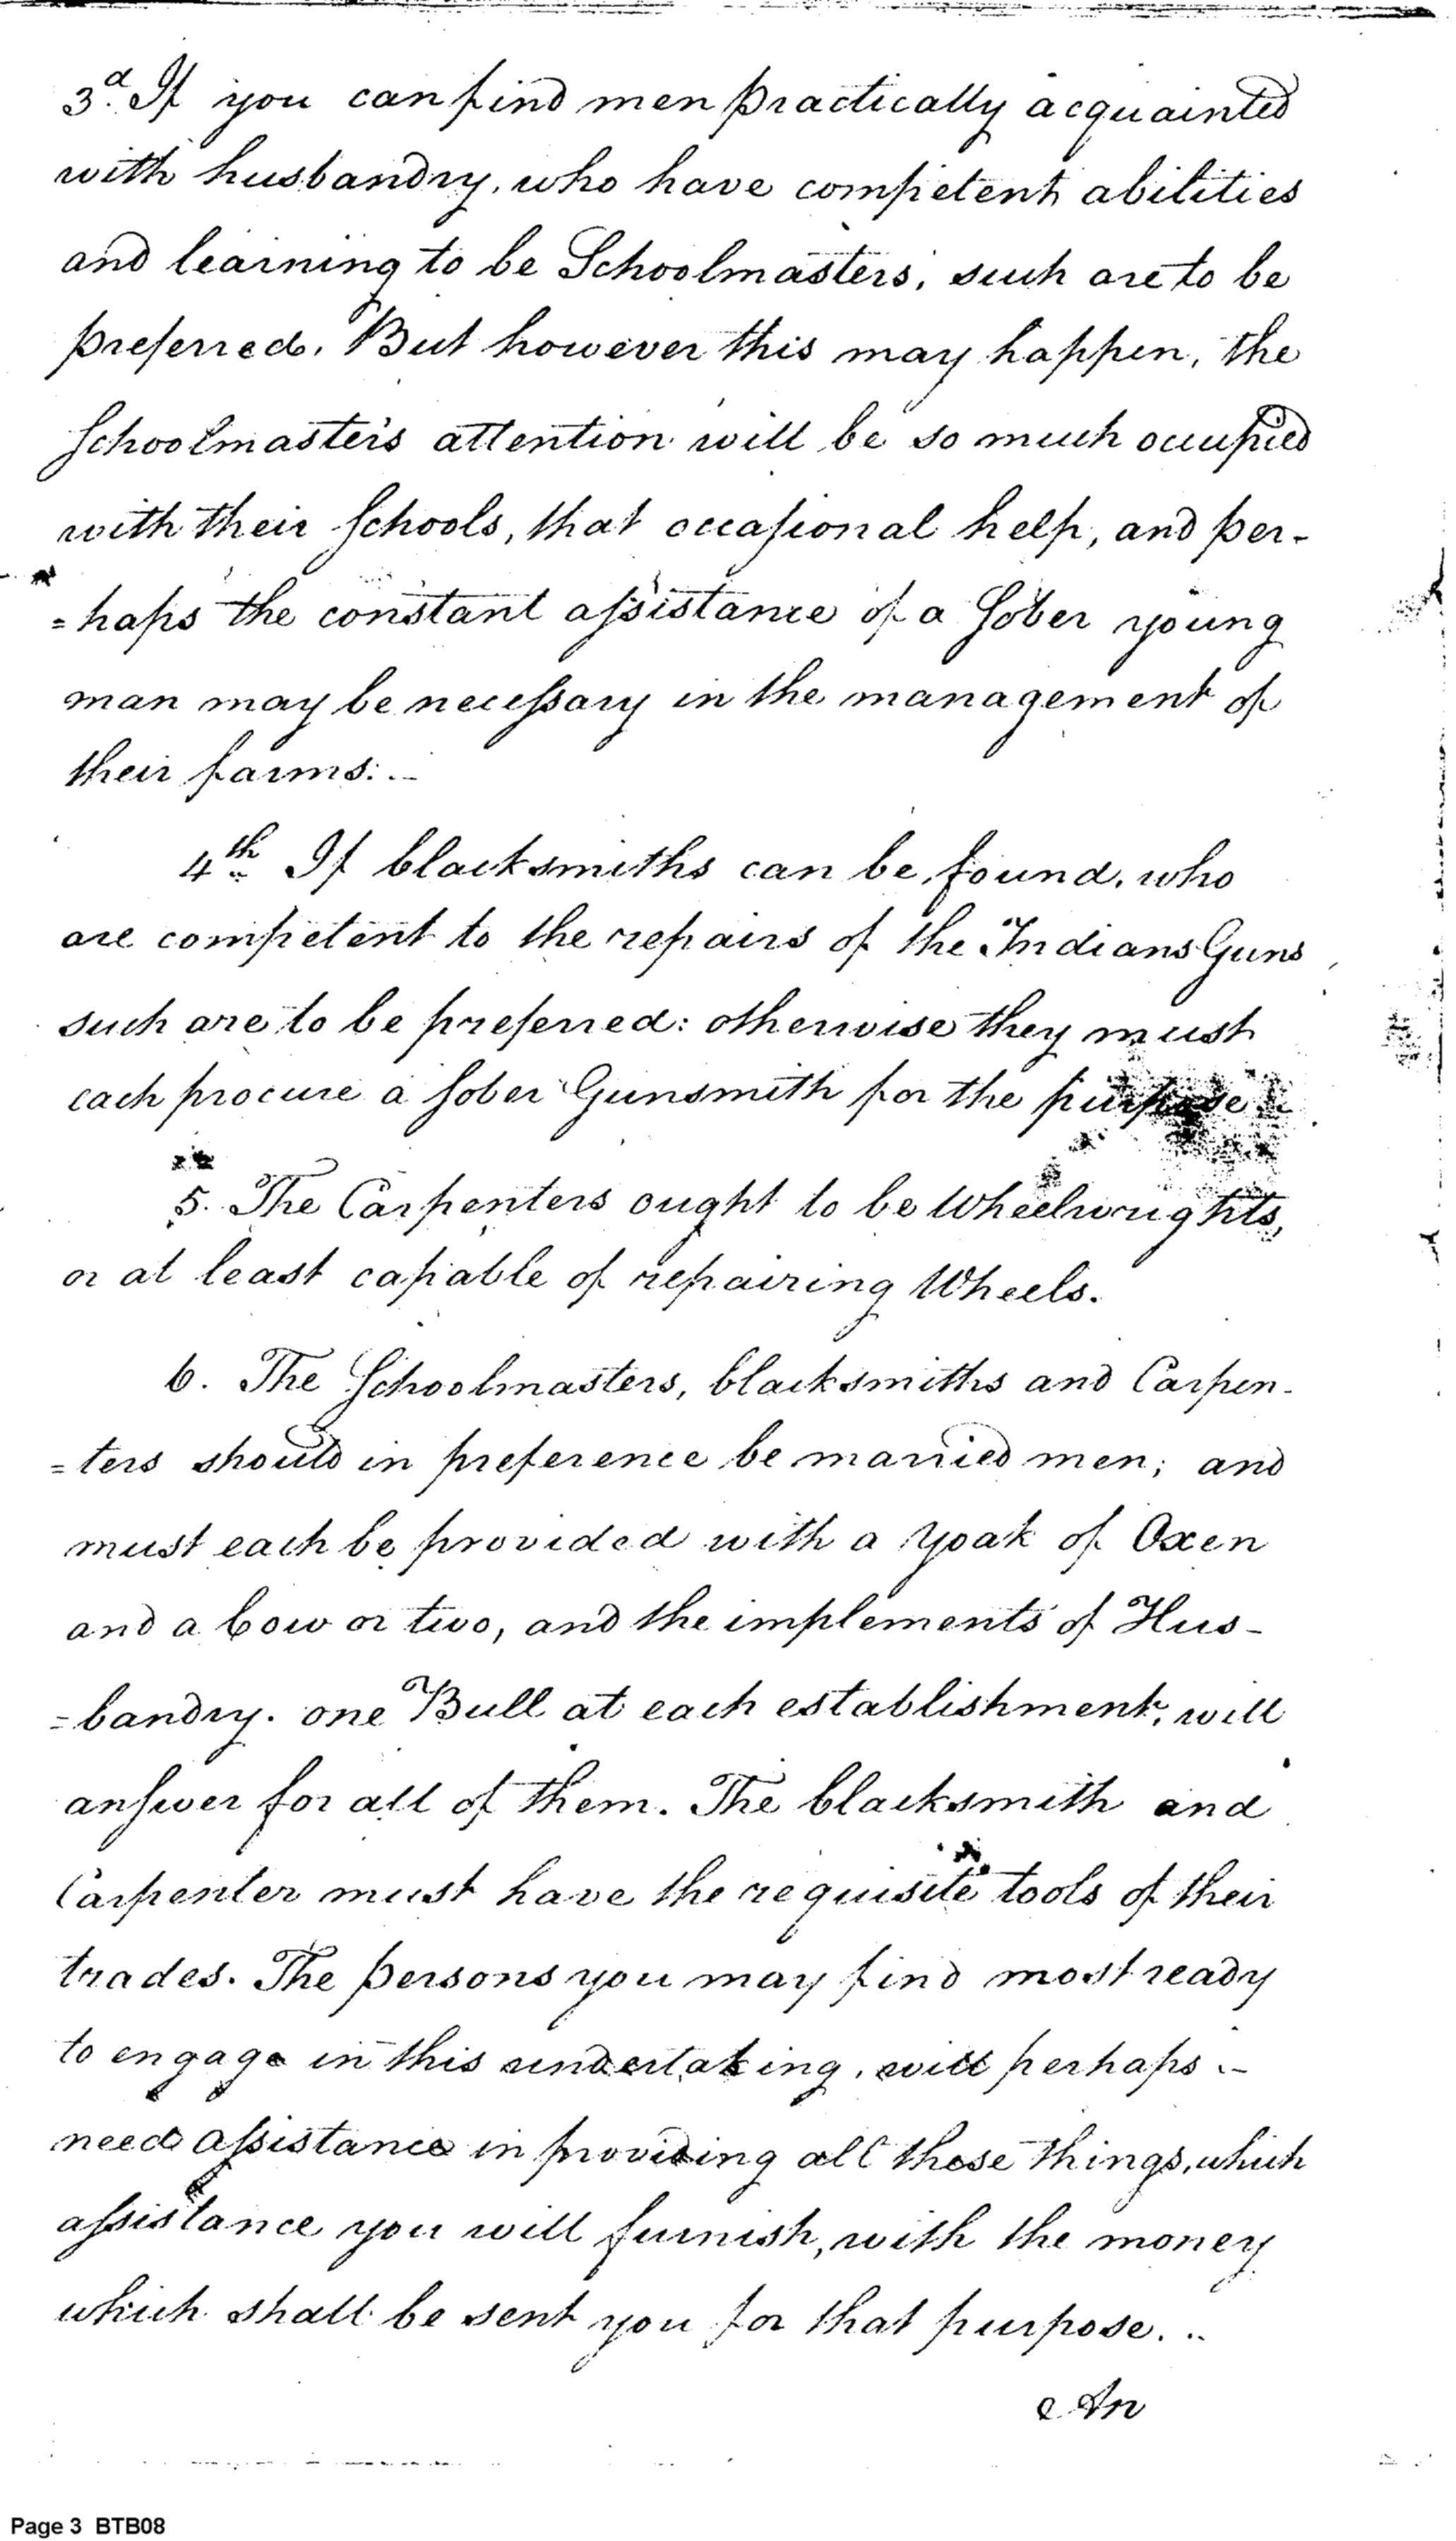 3d. If you can find men practically acquainted
with husbandry, who have competent abilities
and learning to be Schoolmasters, such are to be
preferred. But however this may happen, the
Schoolmasters attention will be so much occupied
with their Schools, that occasional help, and per-
=haps the constant assistance of a Sober young
man may be necessary in the management of
their farms.
4th If blacksmiths can be found, who
are competent to the repairs of the Indians Guns
such are to be preferred: otherwise they must
each procure a sober Gunsmith for the purpose
5. The Carpenters ought to be Wheelwrights,
or at least capable of repairing Wheels.
6. The Schoolmasters, blacksmiths and Carpen-
=ters should in preference be married men; and
must each be provided with a yoak of Oxen
and a Cow or two, and the implements of Hus-
=bandry. one Bull at each establishment, will
answer for all of them. The blacksmith and
Carpenter must have the requisite tools of their
trades. The persons you may find most ready
to engage in this undertaking, will perhaps
need assistance in providing all these things, which
assistance you will furnish, with the money
which shall be sent you for that purpose.
An
Page 3 BTB08